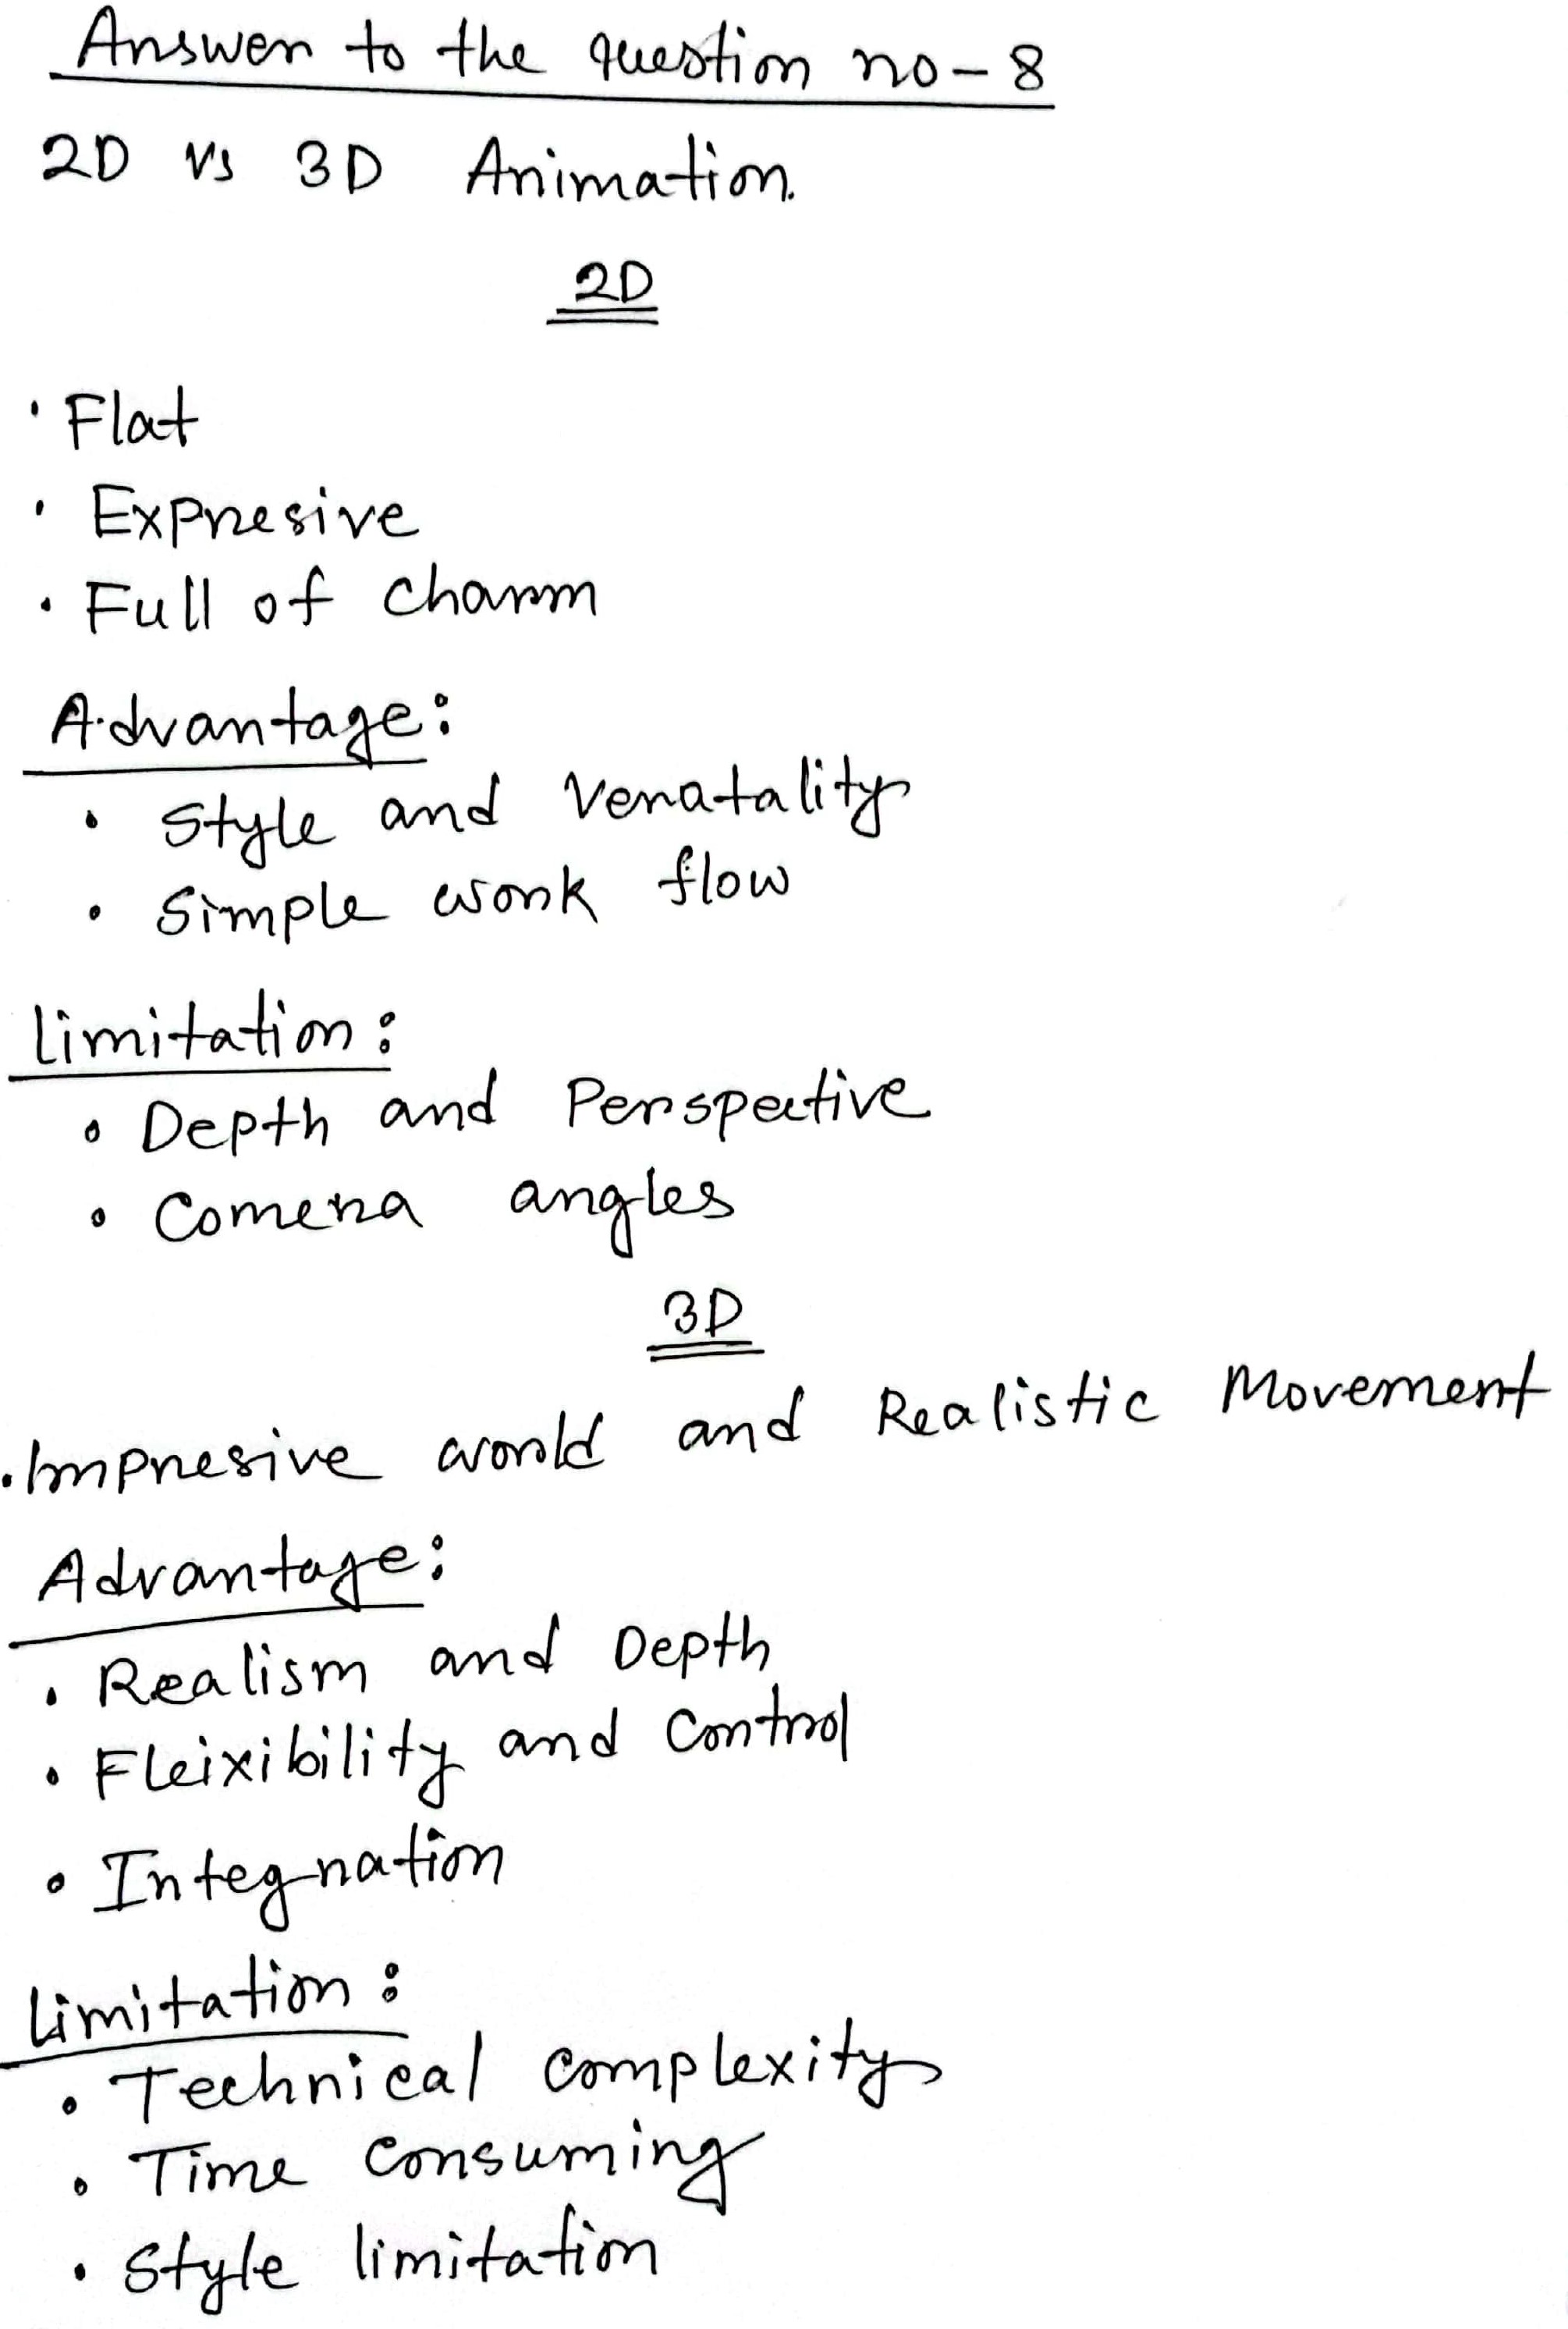 Answer to the question no-8
2D vs 3D Animation.
2D
• Flat
• Expresive
• Full of charm
Advantage:
• Style and Veratality
• Simple work flow
limitation:
• Depth and Perspective
• Comera angles
3D
• Impresive world and Realistic Movement
Advantage:
• Realism and Depth
• Fleixibility and Control
• Integration
limitation:
• Technical complexity
• Time consuming
• Style limitation